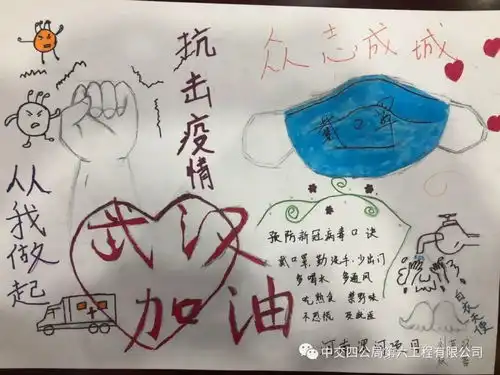 抗击疫情
众志成城
从我做起
武汉
加油
预防新冠病毒口诀
戴口罩,勤洗手,少出门
多喝水 多通风
吃熟食 禁野味
不恐慌 及就医
白衣天使
中交四公局第六工程有限公司